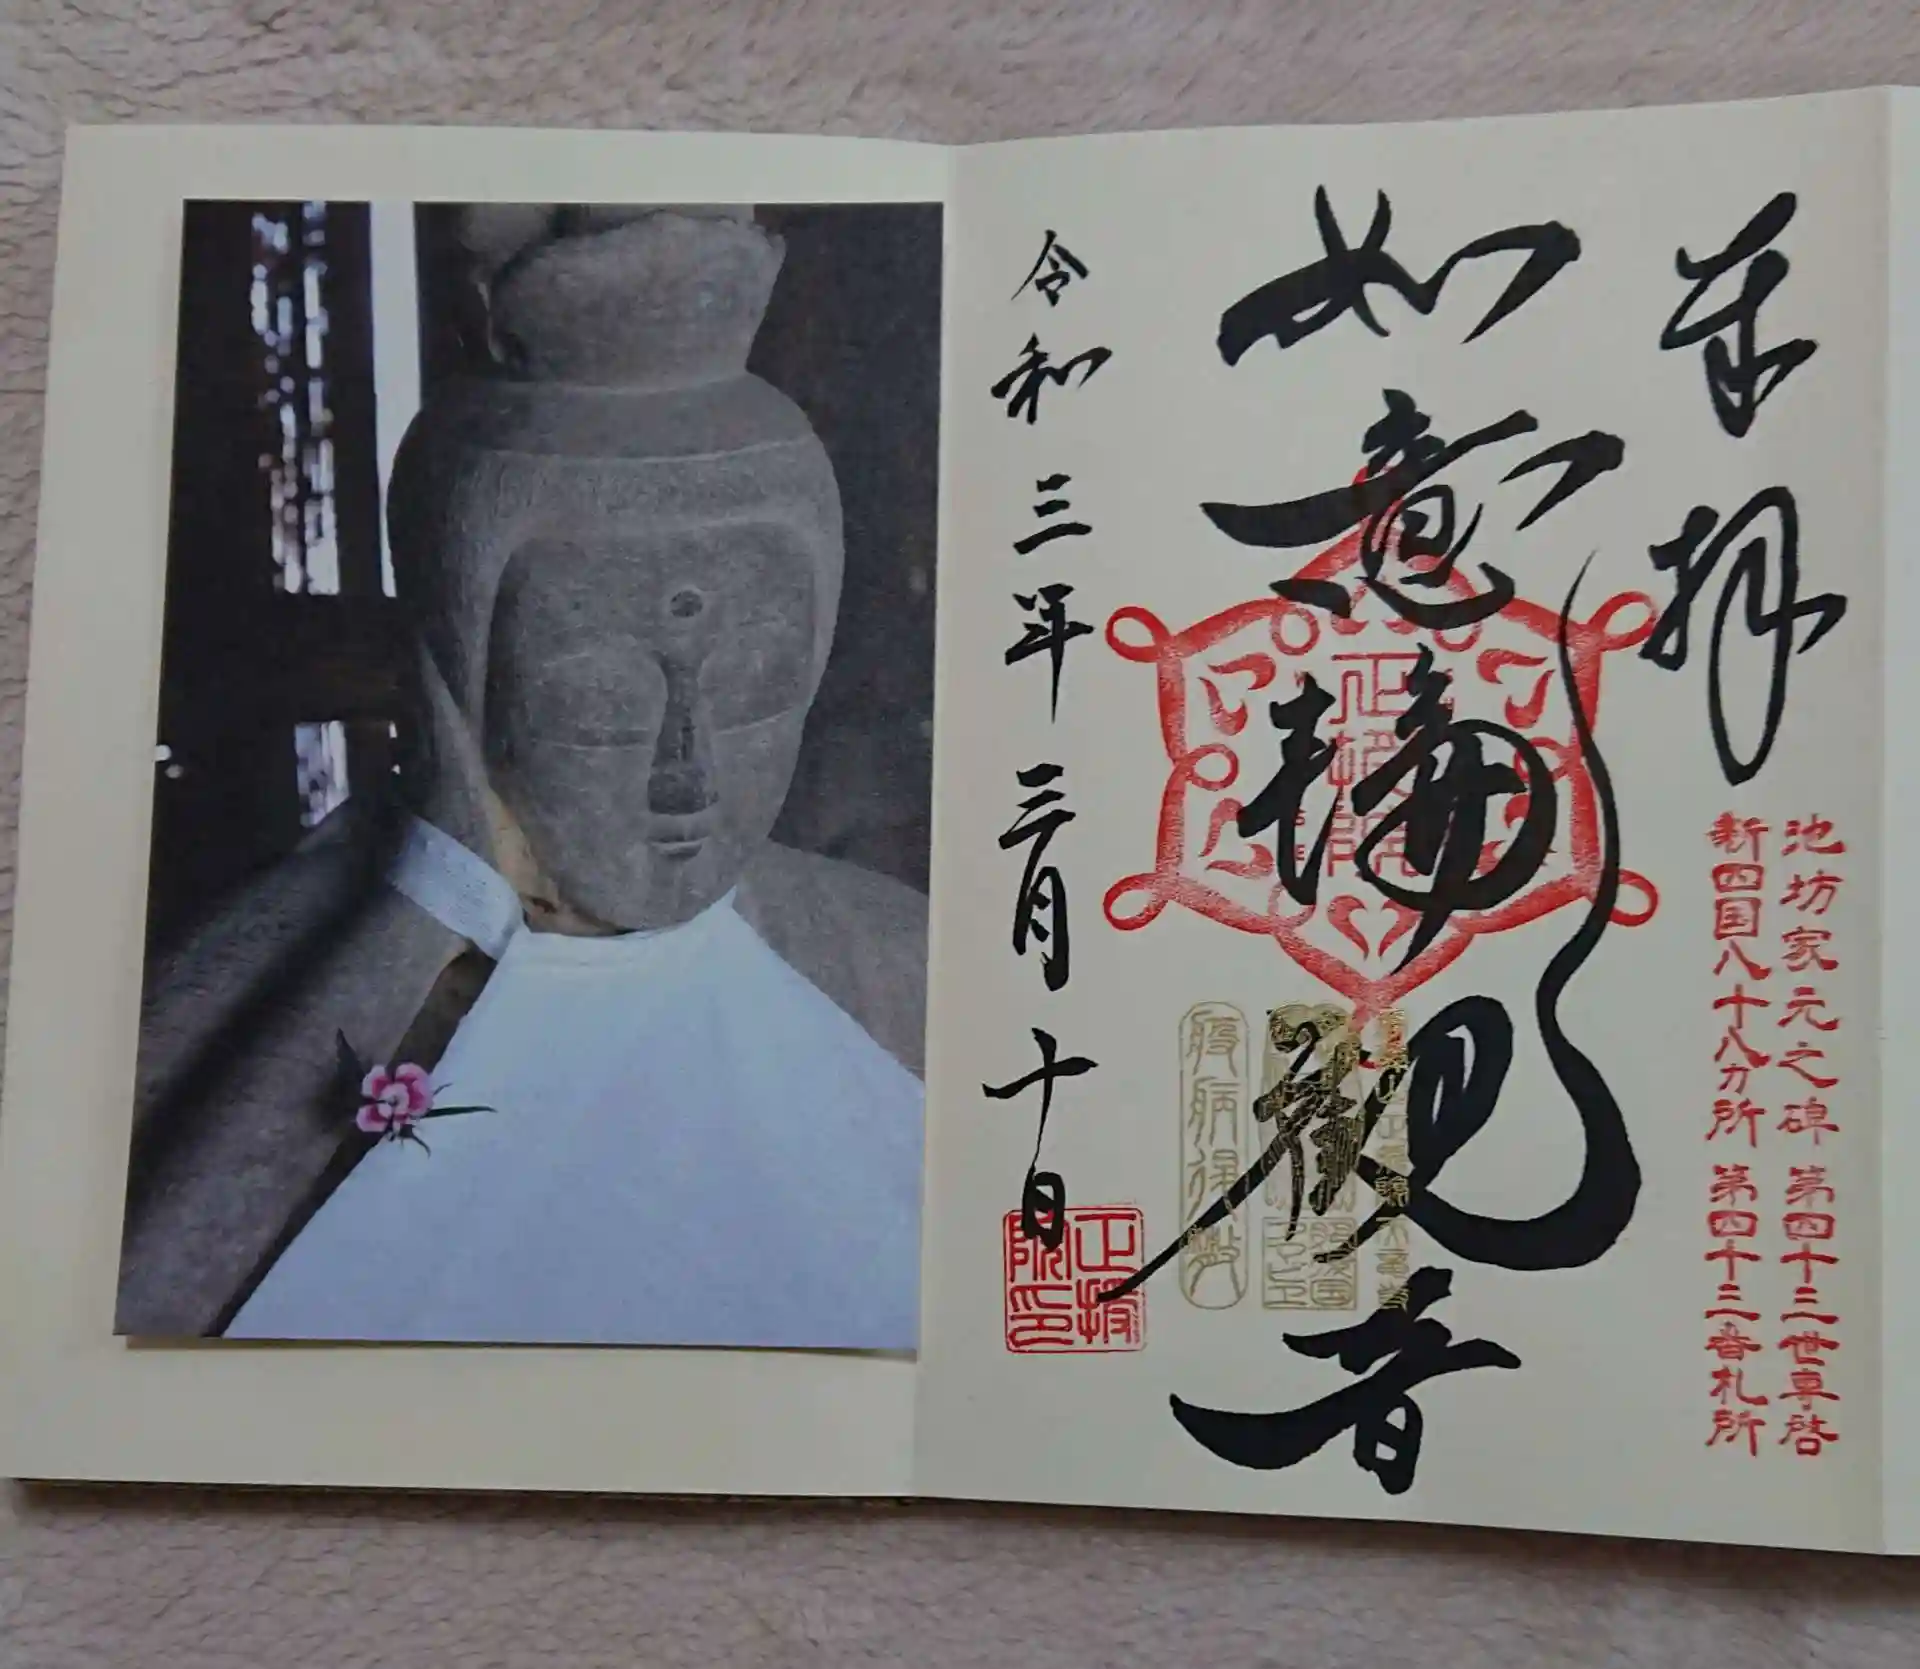 奉拝
池坊家元之碑 第四十三世専啓
新四国八十八カ所 第四十三番札所
如意輪観音
正授院
疫病得散
令和三年三月十日
正授院印